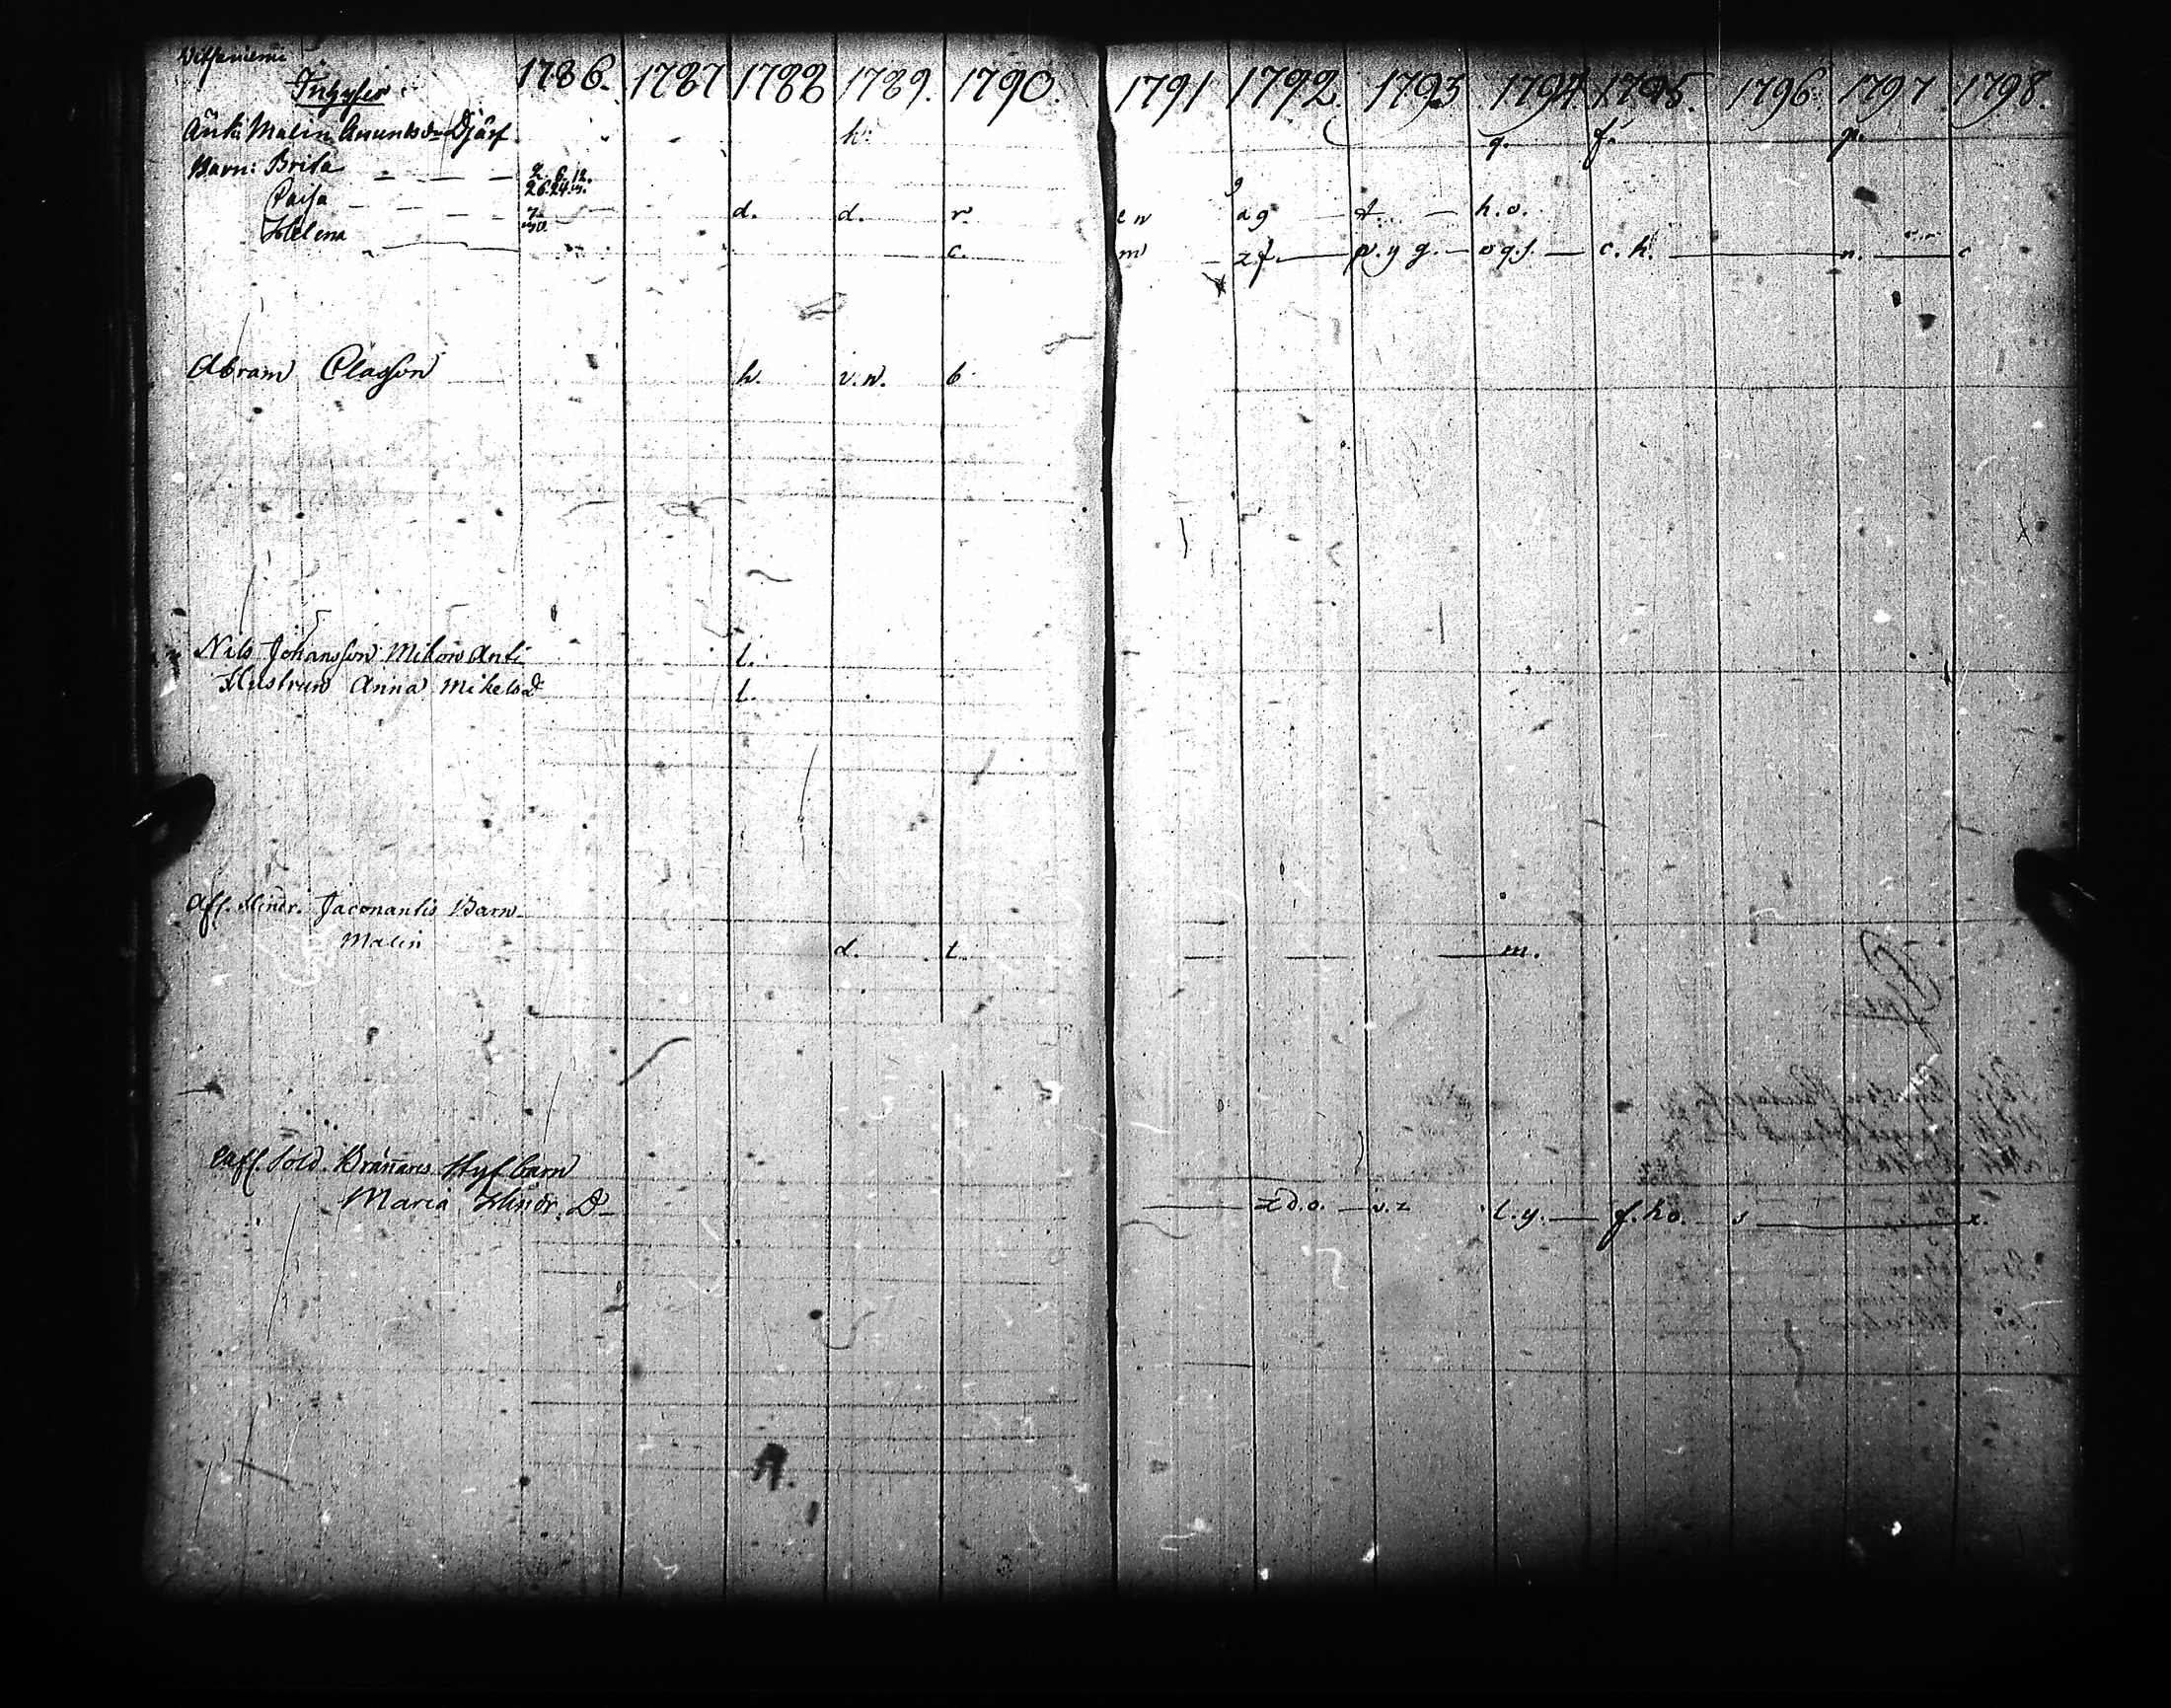 Inhyser
1786. 1787 1788 1789. 1790. 1791 1792. 1793 1794 1795. 1796 1797 1798.
Änk: Malin Amundsdr Djärf h. q. f. p.
Barn: Brita 2. 6. 12.
26. 24.
Caisa d. d. r. e n a g t. h. o.
Helena c. m z f. p. y g. o q s. c. h. n. c
Abram Classon h. v. n. b
Nils Johansson Mikon Anti l.
Hustrun Anna Mikelsd l.
Afl. Hindr. Jaconantis Barn
Malin d. t. m.
Afl. Sold. Brännares Styfbarn
Maria Hindr. D z d. o. v. z l. y. f. h o. s x.